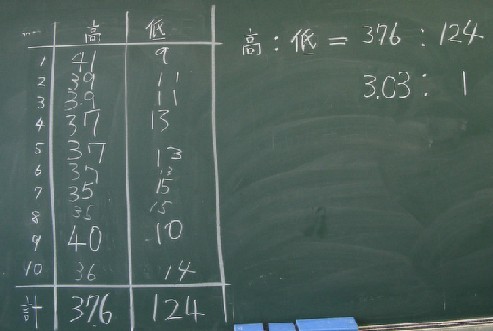 高 低
1 41 9
2 39 11
3 39 11
4 37 13
5 37 13
6 37 13
7 35 15
8 35 15
9 40 10
10 36 14
計 376 124
高:低 = 376 : 124
3.03 : 1